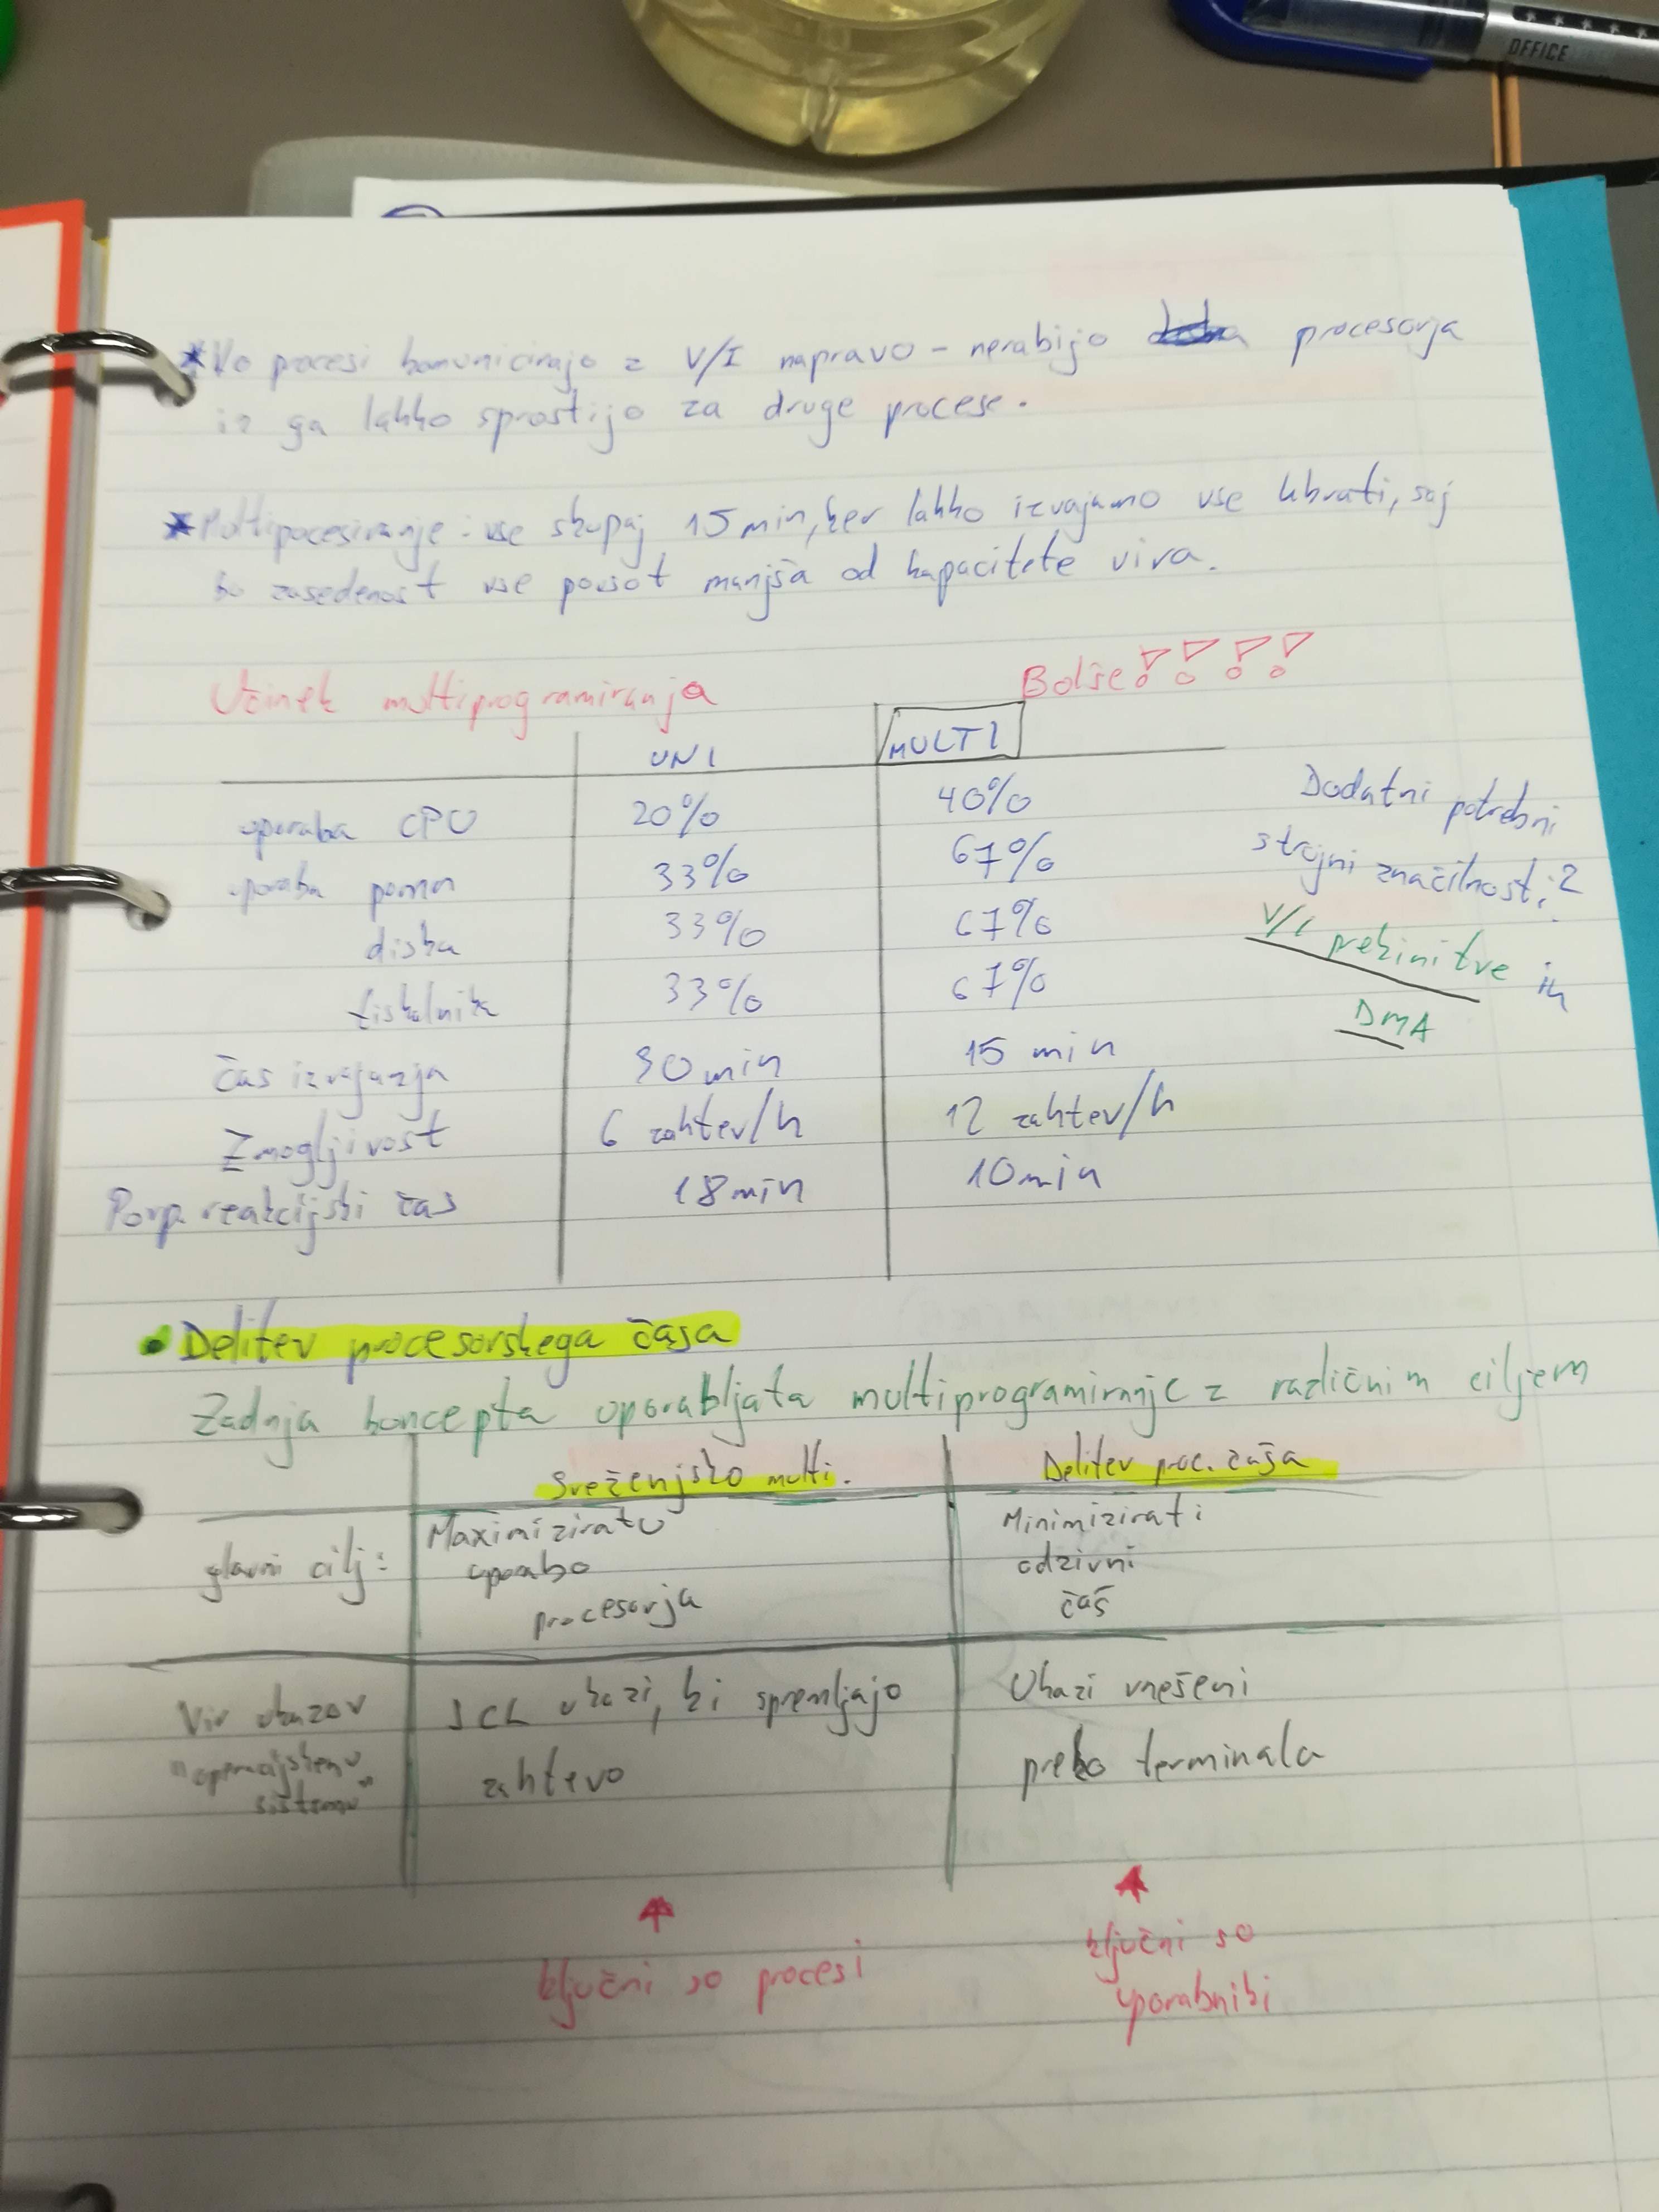 OFFICE
*Ko procesi komunicirajo z V/I napravo - nerabijo procesorja
in ga lahko sprostijo za druge procese.
*Multipocesiranje: vse skupaj 15 min, ker lahko izvajamo vse hkrati, saj
bo zasedenost vse povsot manjša od kapacitete vira.
Učinek multiprogramiranja Bolše!!!!
UNI MULTI
uporaba CPU 20% 40%
uporaba pomn 33% 67%
diska 33% 67%
tiskalnika 33% 67%
čas izvajanja 30 min 15 min
Zmogljivost 6 zahtev/h 12 zahtev/h
Povp. reakcijski čas 18 min 10 min
Dodatni potrebni
strojni značilnosti?
V/I prekinitve in
DMA
• Delitev procesorskega časa
Zadnja koncepta uporabljata multiprogramiranje z različnim ciljem
Sveženjsko multi. Delitev proc. časa
glavni cilj: Maximizirato uporabo procesorja Minimizirati odzivni čas
Vir ukazov "operacijskemu sistemu" JCL ukazi, ki spremljajo zahtevo Ukazi vnešeni preko terminala
ključni so procesi
ključni so
uporabniki